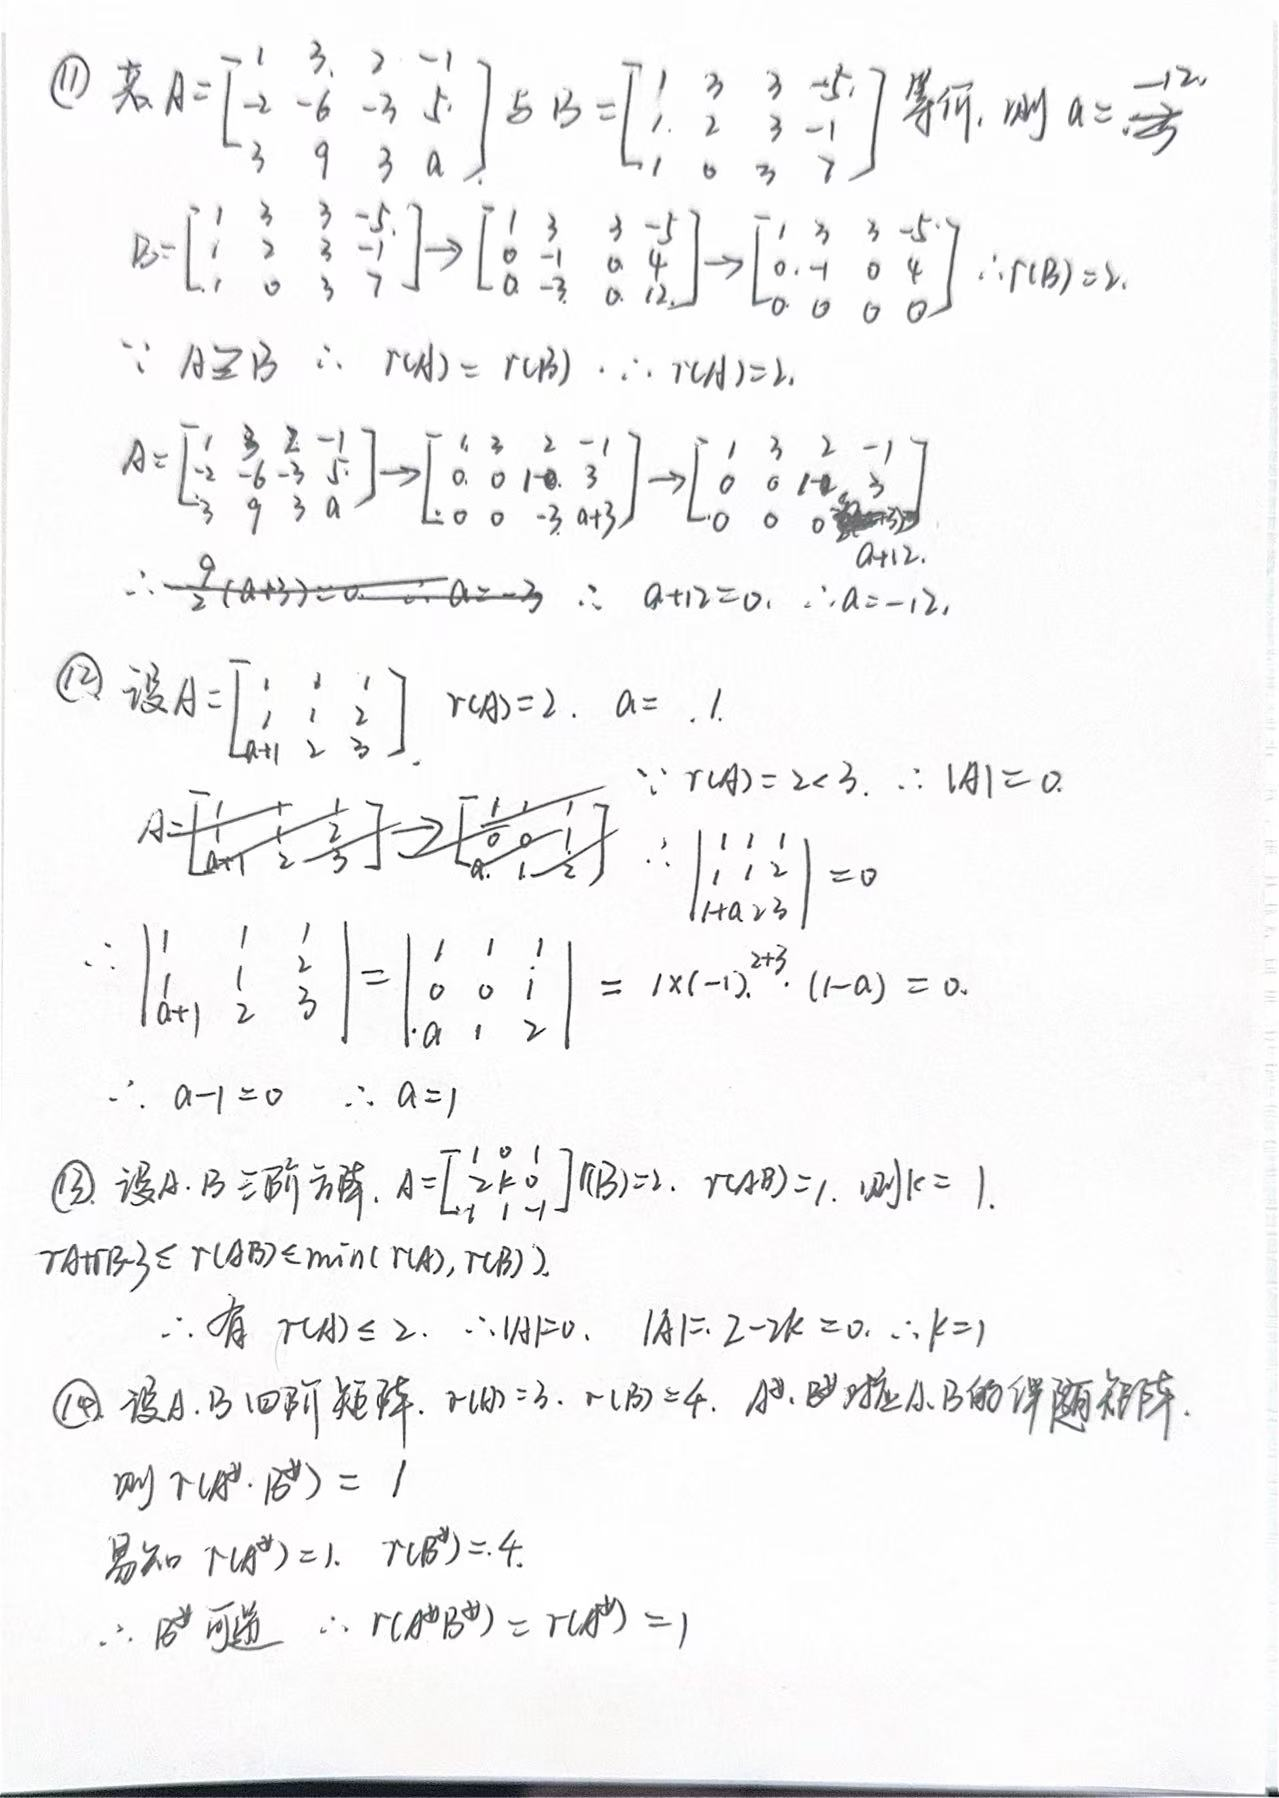 ⑪ 若 A=[1 3 2 -1; -2 -6 -3 5; 3 9 3 a] 与 B=[1 3 3 -5; 1 2 3 -1; 1 0 3 7] 等价, 则 a= -12.
B=[1 3 3 -5; 1 2 3 -1; 1 0 3 7]→[1 3 3 -5; 0 -1 0 4; 0 -3 0 12]→[1 3 3 -5; 0 -1 0 4; 0 0 0 0] ∴r(B)=2.
∵ A≅B ∴ r(A)=r(B). ∴ r(A)=2.
A=[1 3 2 -1; -2 -6 -3 5; 3 9 3 a]→[1 3 2 -1; 0 0 1 3; 0 0 -3 a+3]→[1 3 2 -1; 0 0 1 3; 0 0 0 a+12]
∴ 9/2(a+3)=0 ∴a=-3 ∴ a+12=0. ∴a=-12.
⑫ 设A=[1 1 1; 1 1 2; a+1 2 3]. r(A)=2. a= 1.
A=[1 1 1; 1 1 2; a+1 2 3]→[1 1 1; 0 0 1; a 1 2] ∵ r(A)=2<3. ∴ |A|=0.
∴ |1 1 1; 1 1 2; 1+a 2 3|=0
∴ |1 1 1; 1 1 2; a+1 2 3|=|1 1 1; 0 0 1; a 1 2| = 1×(-1)^2+3·(1-a)=0.
∴ a-1=0 ∴ a=1
⑬ 设A.B三阶方阵. A=[1 0 1; 2 k 0; -1 1 -1] r(B)=2. r(AB)=1. 则k= 1.
rA+rB-3≤r(AB)≤min(r(A),r(B)).
∴ 有 r(A)≤2. ∴|A|=0. |A|=2-2k=0. ∴k=1
⑭ 设A.B四阶矩阵. r(A)=3. r(B)=4. A*.B*对应A.B的伴随矩阵.
则 r(A*·B*)= 1
易知 r(A*)=1. r(B*)=4.
∴ B*可逆 ∴ r(A*B*)=r(A*)=1